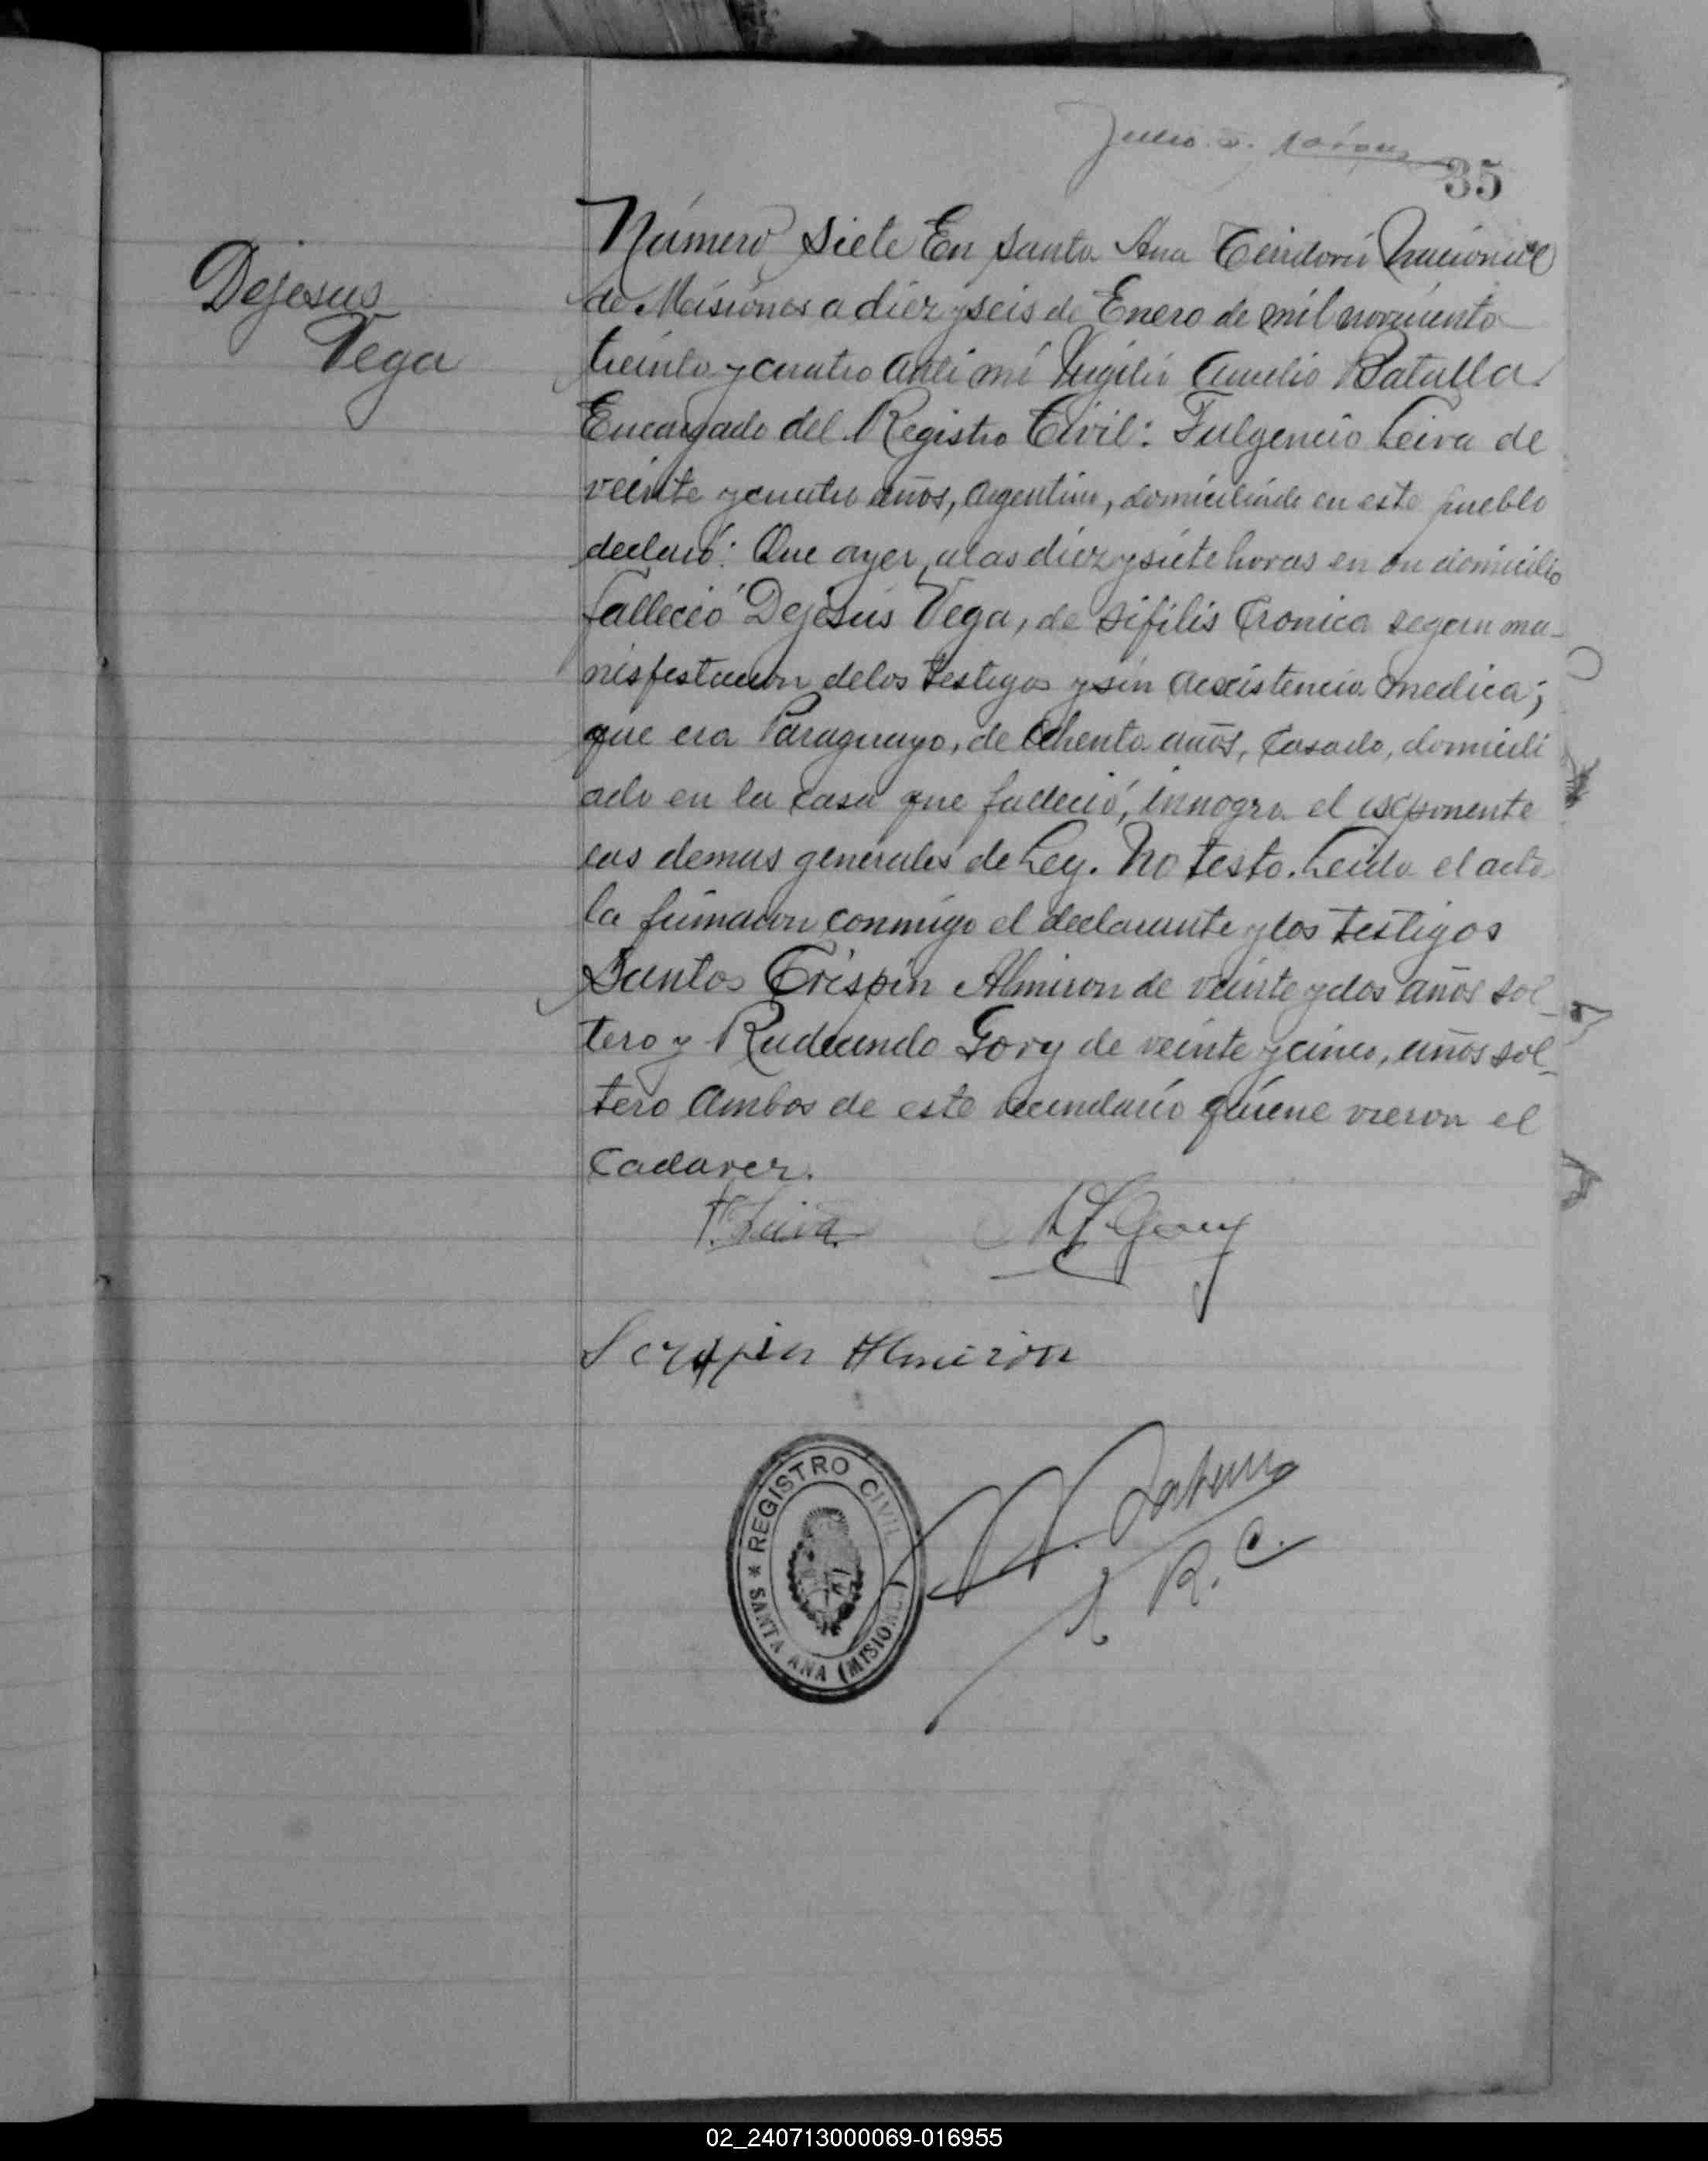 35
Dejesus
Vega
Número siete En Santa Ana Territorio Nacional
de Misiones a diez y seis de Enero de mil noveciento
treinta y cuatro ante mí Virgilio Aurelio Batalla
Encargado del Registro Civil: Fulgencio Leiva de
veinte y cuatro años, Argentino, domiciliado en este pueblo
declaró: Que ayer, a las diez y siete horas en su domicilio
falleció Dejesús Vega, de sifilis Cronica segun ma-
nisfestacion de los testigos y sin acxistencia medica;
que era Paraguayo, de Ochenta años, Casado, domicili
ado en la casa que falleció, innogra el esxponente
las demas generales de Ley. No testo. Leida el acta
la firmaron conmigo el declarante y los testigos
Santos Crispin Almiron de veinte y dos años sol-
tero y Rudecundo Gory de veinte y cinco, años sol-
tero Ambos de este vecindario quiene vieron el
Cadaver.
F. Leiva
Gory
Almiron
REGISTRO CIVIL
* SANTA ANA (MISIONES)
R. C.
02_240713000069-016955